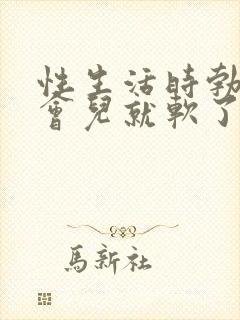 性生活時勃
會兒就軟了
馬新社